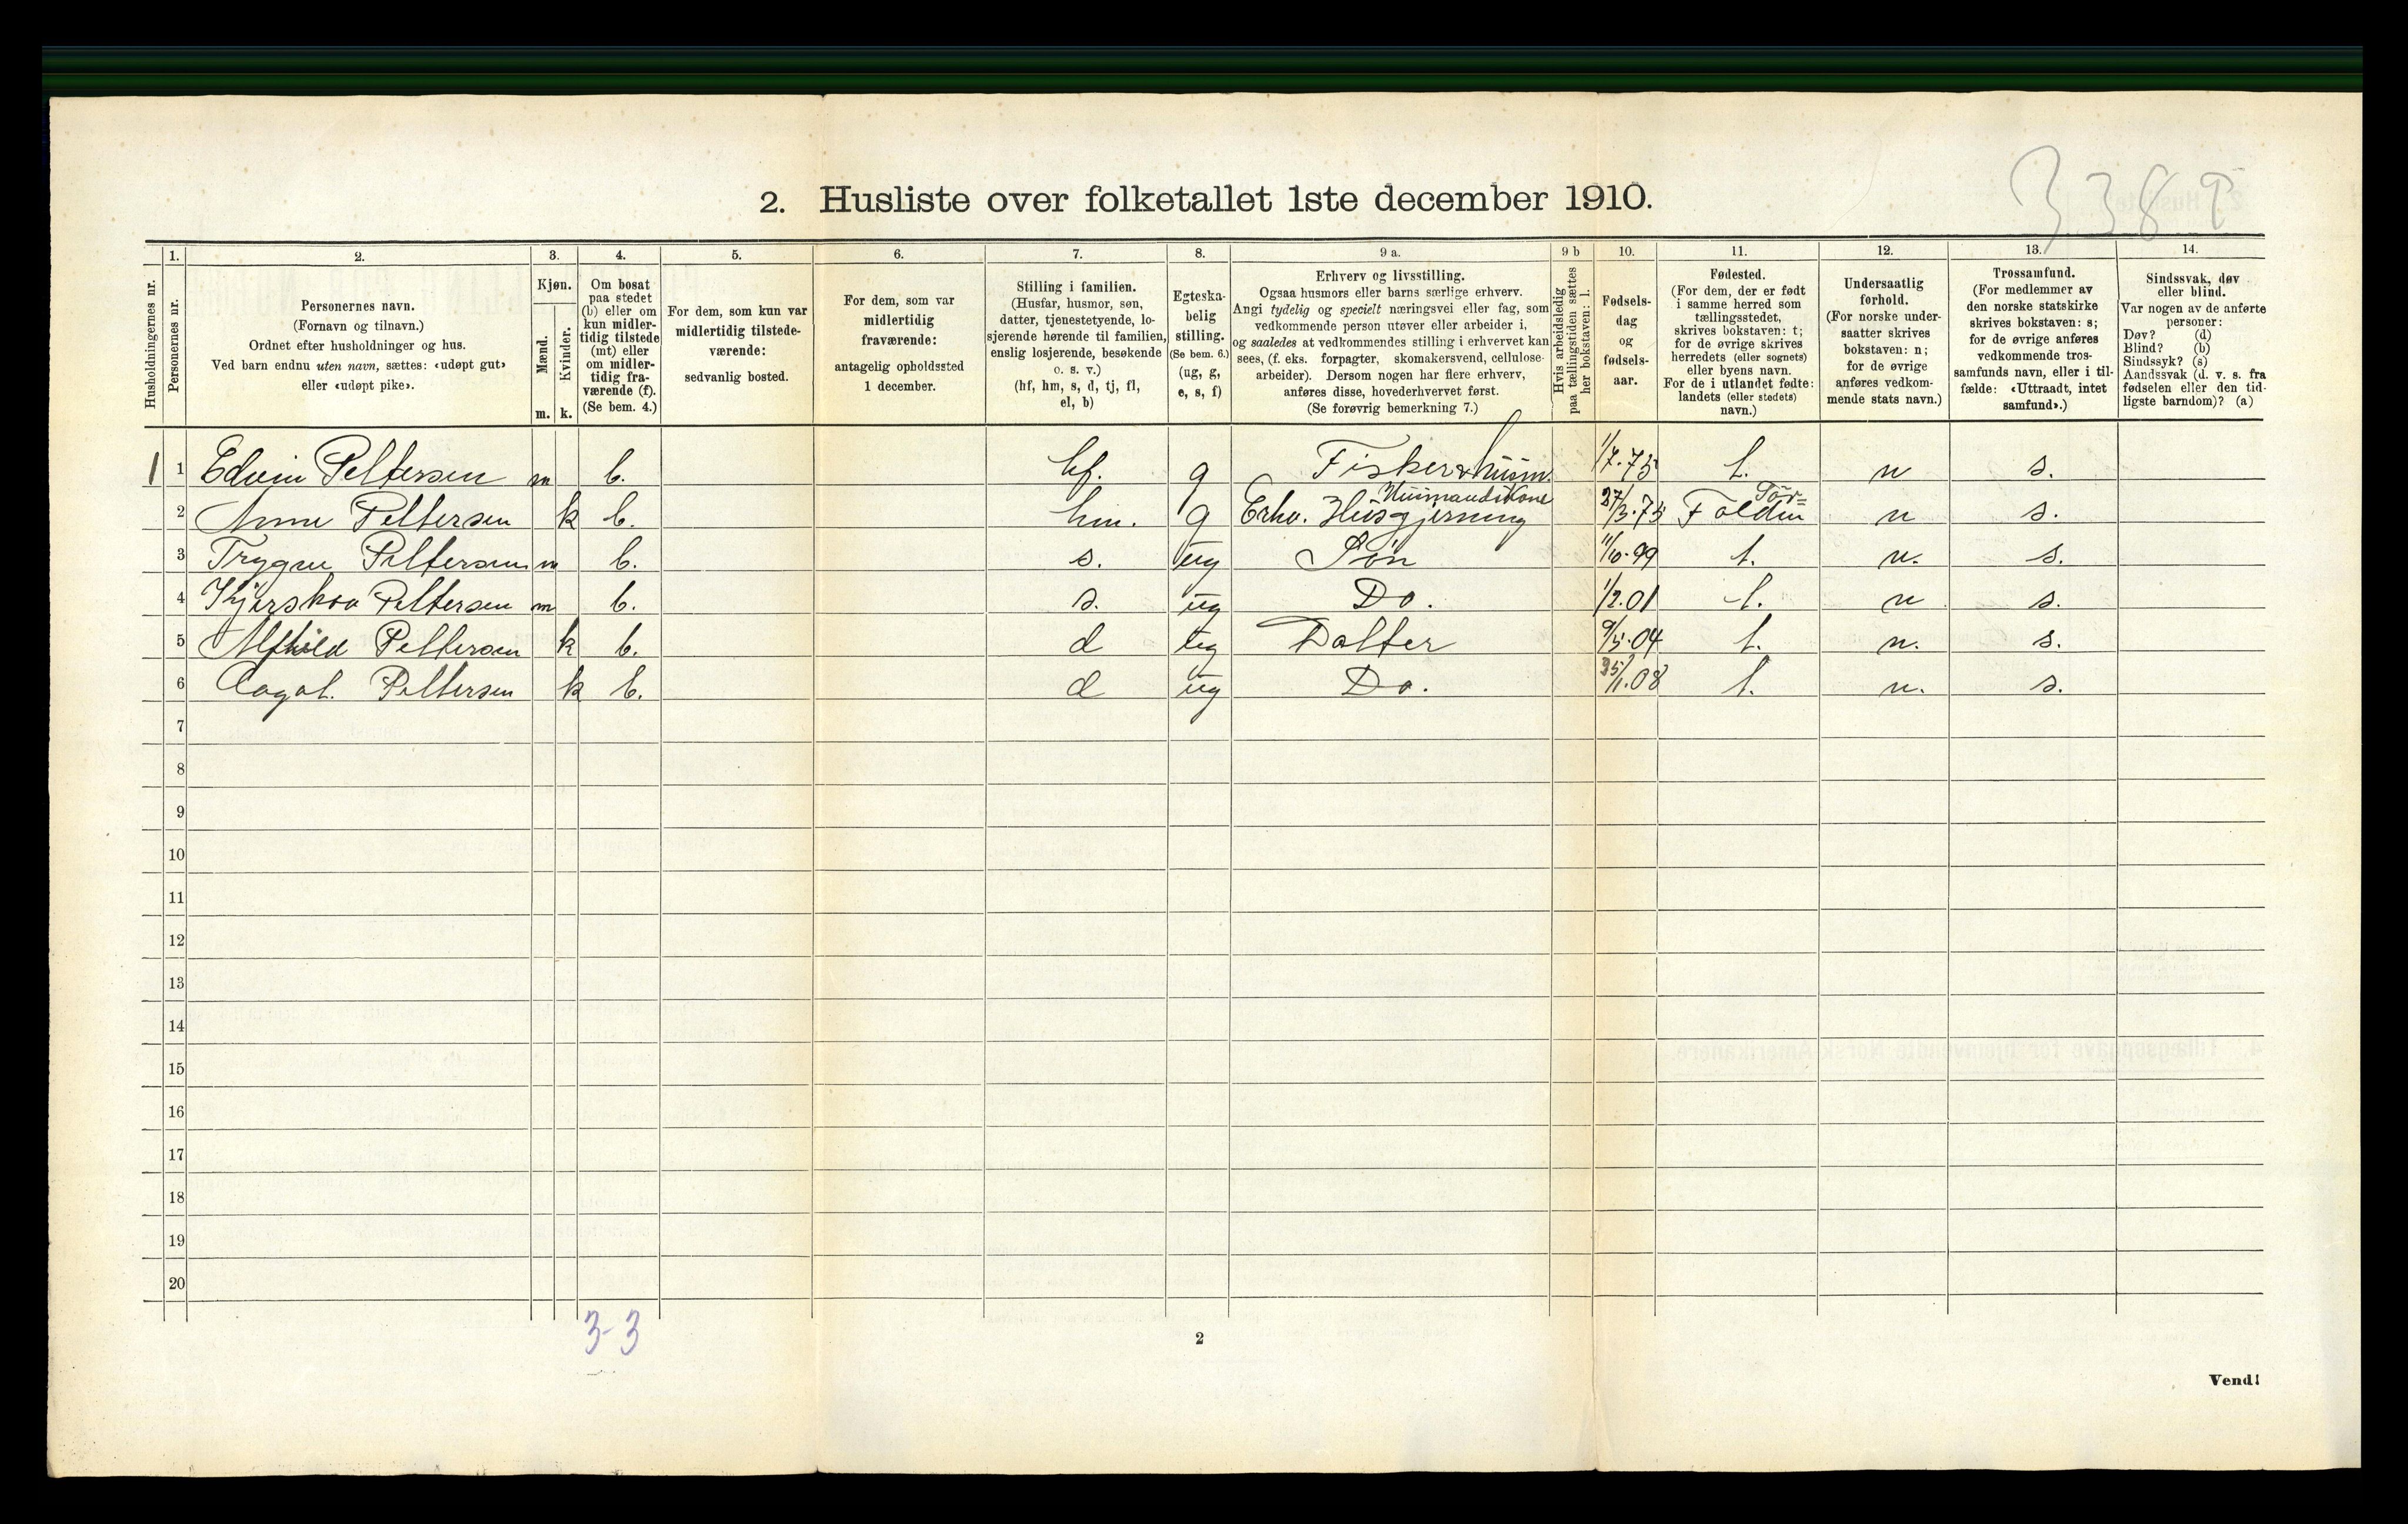 3389
2. Husliste over folketallet 1ste december 1910.
Husholdningernes nr.
1. Personernes nr.
2. Personernes navn.
(Fornavn og tilnavn.)
Ordnet efter husholdninger og hus.
Ved barn endnu uten navn, sættes: «udøpt gut»
eller «udøpt pike».
3. Kjøn.
Mænd. m.
Kvinder. k.
4. Om bosat
paa stedet
(b) eller om
kun midler-
tidig tilstede
(mt) eller
om midler-
tidig fra-
værende (f).
(Se bem. 4.)
5. For dem, som kun var
midlertidig tilstede-
værende:
sedvanlig bosted.
6. For dem, som var
midlertidig
fraværende:
antagelig opholdssted
1 december.
7. Stilling i familien.
(Husfar, husmor, søn,
datter, tjenestetyende, lo-
sjerende hørende til familien,
enslig losjerende, besøkende
o. s. v.)
(hf, hm, s, d, tj, fl,
el, b)
8. Egteska-
belig
stilling.
(Se bem. 6.)
(ug, g,
e, s, f)
9 a. Erhverv og livsstilling.
Ogsaa husmors eller barns særlige erhverv.
Angi tydelig og specielt næringsvei eller fag, som
vedkommende person utøver eller arbeider i,
og saaledes at vedkommendes stilling i erhvervet kan
sees, (f. eks. forpagter, skomakersvend, cellulose-
arbeider). Dersom nogen har flere erhverv,
anføres disse, hovederhvervet først.
(Se forøvrig bemerkning 7.)
9 b Hvis arbeidsledig
paa tællingstiden sættes
her bokstaven: l.
10. Fødsels-
dag
og
fødsels-
aar.
11. Fødested.
(For dem, der er født
i samme herred som
tællingsstedet,
skrives bokstaven: t;
for de øvrige skrives
herredets (eller sognets)
eller byens navn.
For de i utlandet fødte:
landets (eller stedets)
navn.)
12. Undersaatlig
forhold.
(For norske under-
saatter skrives
bokstaven: n;
for de øvrige
anføres vedkom-
mende stats navn.)
13. Trossamfund.
(For medlemmer av
den norske statskirke
skrives bokstaven: s;
for de øvrige anføres
vedkommende tros-
samfunds navn, eller i til-
fælde: «Uttraadt, intet
samfund».)
14. Sindssvak, døv
eller blind.
Var nogen av de anførte
personer:
Døv? (d)
Blind? (b)
Sindssyk? (s)
Aandssvak (d. v. s. fra
fødselen eller den tid-
ligste barndom)? (a)
1 1 Edvin Pettersen m b. hf. g Fisker & husm. 1/7.75 t. n s.
Husmandskone Sør=
2 Anne Pettersen k b. hm. g Erhv. Husgjerning 27/3.75 Folden n s.
3 Trygve Pettersen m b. s. ug Søn 11/10.99 t. n. s.
4 Pettersen m b. s. ug Do. 1/2.01 t. n s.
5 Alfhild Pettersen k b. d ug Datter 9/5.04 t. n. s.
6 Aagot. Pettersen k b. d ug Do. 25/1.08 t. n. s.
7
8
9
10
11
12
13
14
15
16
17
18
19
20
3-3
2
Vend!